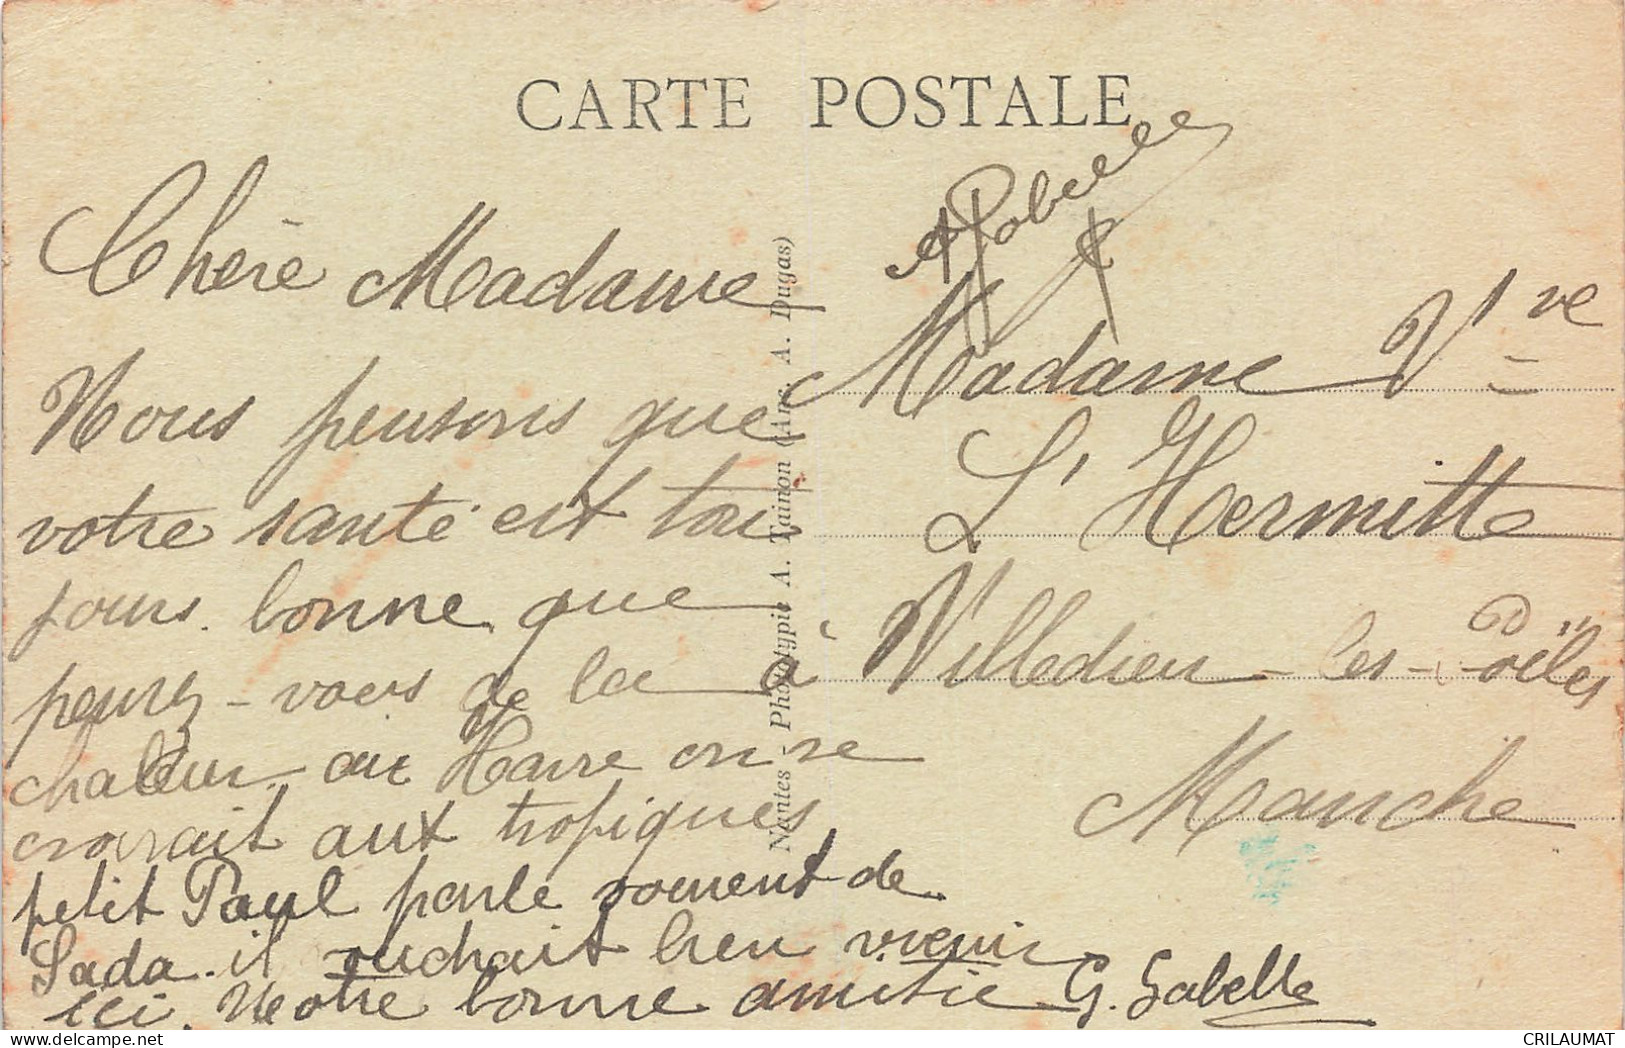 CARTE POSTALE
Chère Madame
Nous pensons que
votre santé est tou
jours bonne que
pensez-vous de la
chaleur au Havre on se
croirait aux tropiques
petit Paul parle souvent de
Dada. il voudrait bien revenir
ici. Notre bonne amitié G. Gabelle
Nantes - Phototypie A. Tainon (Anc. A. Dugas)
Madame Vve
L'Hermitte
à Villedieu-les-Poëles
Manche
CRILAUMAT